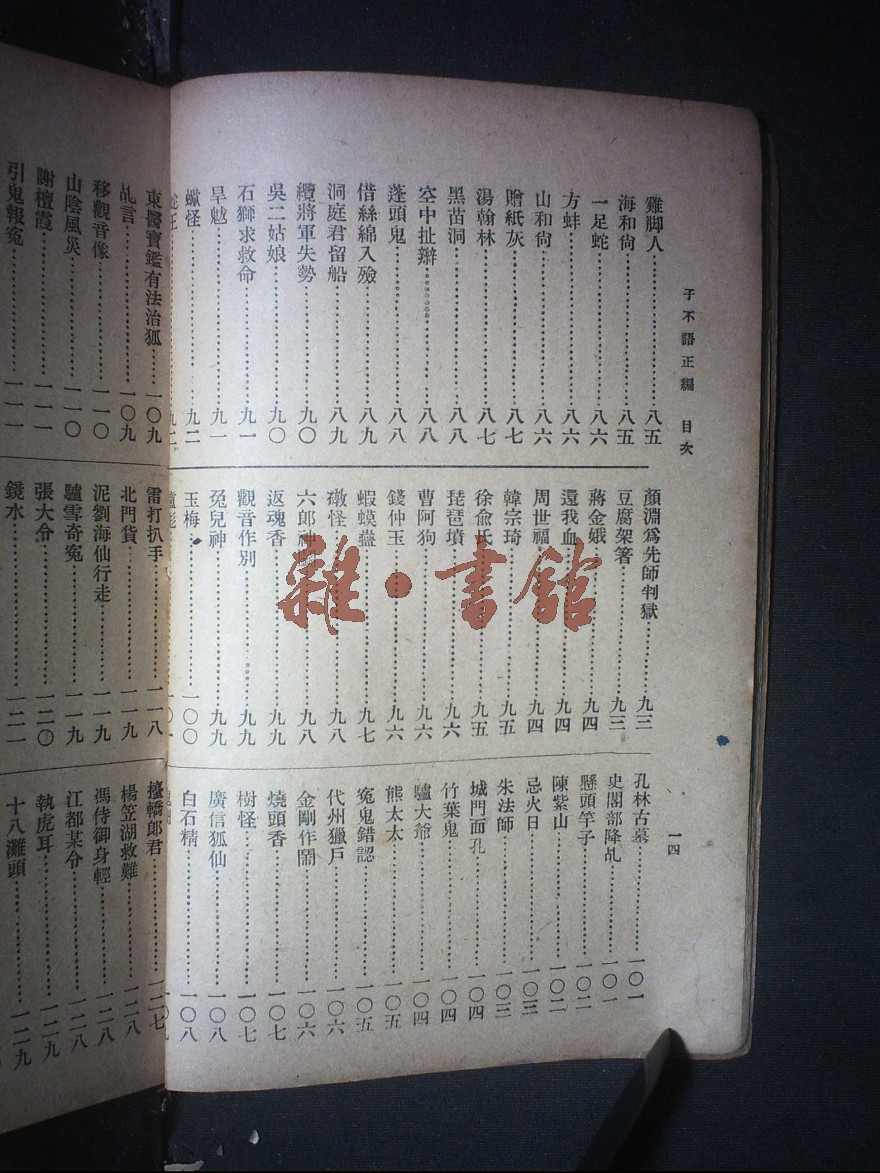 子不語正編 目次
一四
雞脚人…………八五
海和尙…………八五
一足蛇…………八六
方蚌…………八六
山和尙…………八六
贈紙灰…………八七
湯翰林…………八七
黑苗洞…………八八
空中扯辮…………八八
蓬頭鬼…………八八
借絲綿入殮…………八九
洞庭君留船…………八九
纜將軍失勢…………九〇
吳二姑娘…………九〇
石獅求救命…………九一
旱魃…………九一
蠍怪…………九二
顏淵爲先師判獄…………九三
豆腐架箸…………九三
蔣金娥…………九四
還我血…………九四
周世福…………九四
韓宗琦…………九五
徐俞氏…………九五
琵琶墳…………九六
曹阿狗…………九六
錢仲玉…………九六
蝦蟆蠱…………九七
礅怪…………九八
六郎神…………九八
返魂香…………九九
觀音作別…………九九
兔兒神…………九九
玉梅…………一〇〇
孔林古墓…………一〇一
史閣部降乩…………一〇一
懸頭竿子…………一〇二
陳紫山…………一〇二
忌火日…………一〇三
朱法師…………一〇三
城門面孔…………一〇四
竹葉鬼…………一〇四
驢大爺…………一〇四
熊太太…………一〇五
冤鬼錯認…………一〇五
代州獵戶…………一〇六
金剛作鬧…………一〇六
燒頭香…………一〇七
樹怪…………一〇七
廣信狐仙…………一〇八
白石精…………一〇八
東醫寶鑑有法治狐…………一〇九
乩言…………一〇九
移觀音像…………一一〇
山陰風災…………一一〇
謝檀霞…………一一一
引鬼報冤…………一一一
雷打扒手…………一一八
北門貨…………一一九
泥劉海仙行走…………一一九
驢雪奇冤…………一一九
張大令…………一二〇
鏡水…………一二一
擡轎郎君…………一二七
楊笠湖救難…………一二八
馮侍御身輕…………一二八
江都某令…………一二八
執虎耳…………一二九
十八灘頭…………一二九
雜·書館